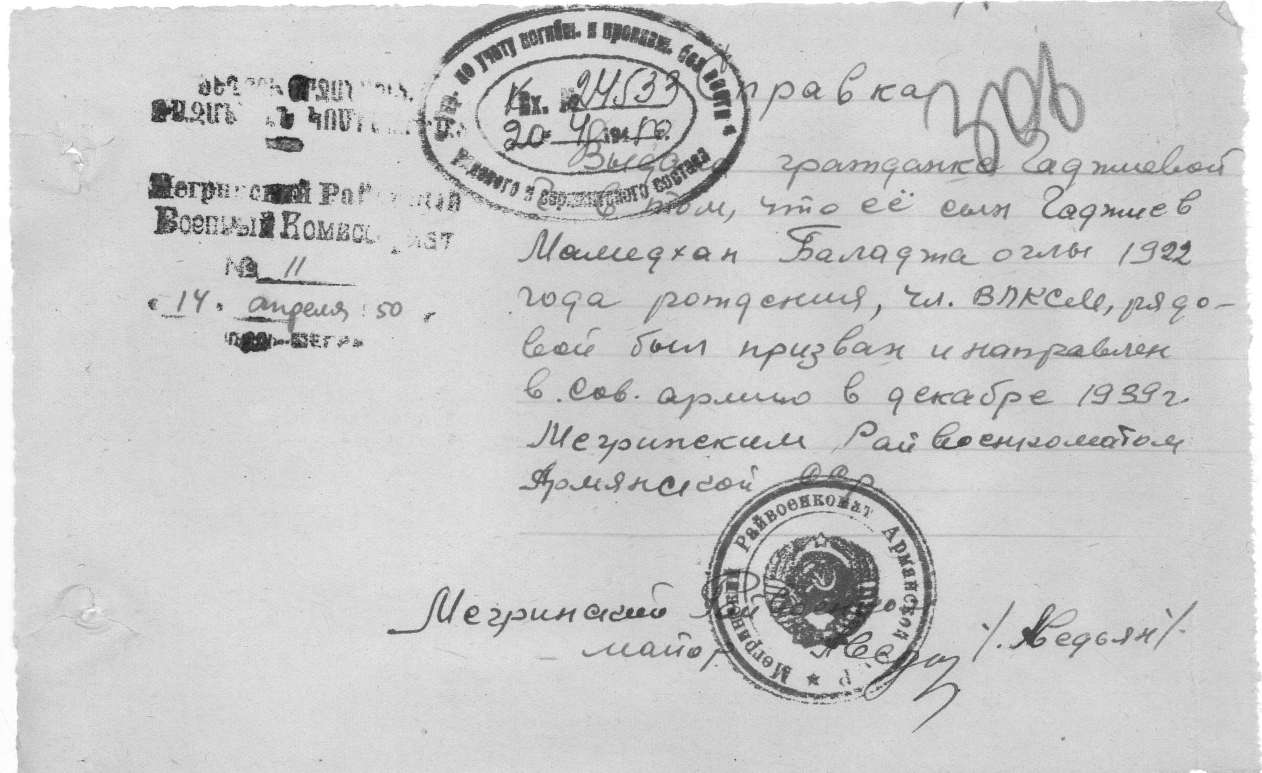 Справка
Упр. по учету погибш. и пропавш. без вести
рядового и сержантского состава
Вх. № 24533
20 4 1950 г.
Мегринский Районный
Военный Комиссариат
№ 11
"14" апреля 50
Выдана гражданке Гаджиевой
в том, что её сын Гаджиев
Мамедхан Баладжа оглы 1922
года рождения, чл. ВЛКСМ, рядо-
вой был призван и направлен
в Сов. армию в декабре 1939 г.
Мегринским Райвоенкоматом
Армянской ССР
Мегринский
майор /Аведьян/
Мегринский Райвоенкомат Армянской